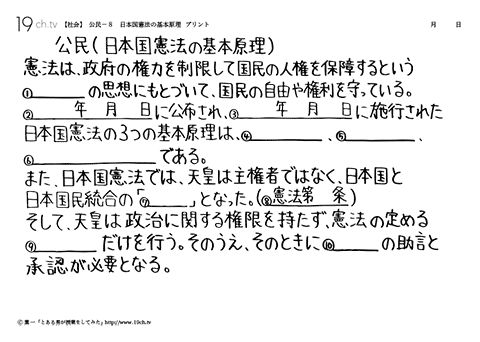 19ch.tv 【社会】 公民－8 日本国憲法の基本原理 プリント 月 日
公民(日本国憲法の基本原理)
憲法は、政府の権力を制限して国民の人権を保障するという
①______の思想にもとづいて、国民の自由や権利を守っている。
②____年__月__日に公布され、③____年__月__日に施行された
日本国憲法の3つの基本原理は、④________、⑤________、
⑥____________である。
また、日本国憲法では、天皇は主権者ではなく、日本国と
日本国民統合の「⑦____」となった。(⑧憲法第 条)
そして、天皇は政治に関する権限を持たず、憲法の定める
⑨______だけを行う。そのうえ、そのときに⑩____の助言と
承認が必要となる。
© 葉一「とある男が授業をしてみた」http://www.19ch.tv